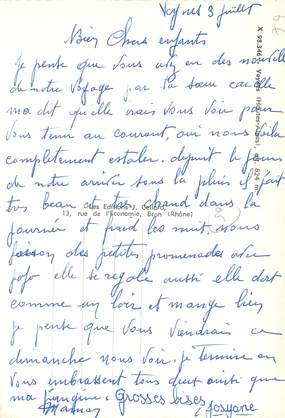 Veynes 3 juillet
Bien Chers enfants
Je pense que vous avez eu des nouvelle
de notre voyage par ta sœur car elle
ma dit qu'elle vrais vous voir pour
vous tenir au courant, oui nous voila
completement estaler. depuit le jours
de notre arriver sous la pluis il fait
tres beau et tres chaud dans la
journée et froid les nuit. nous
faison des petites promenades avec
jojo elle se regale aussi elle dort
comme un loir et mange bien
je pense que vous viendrais ce
dimanche nous voir. je termine en
vous embrassent tous deux ainsi que
ma Grosses bises
Maman Josyane
Les Editions J. Cellard,
13, rue de l'Economie, Bron (Rhône)
X 98.346 Veynes (Hautes-Alpes) alt. 824 m